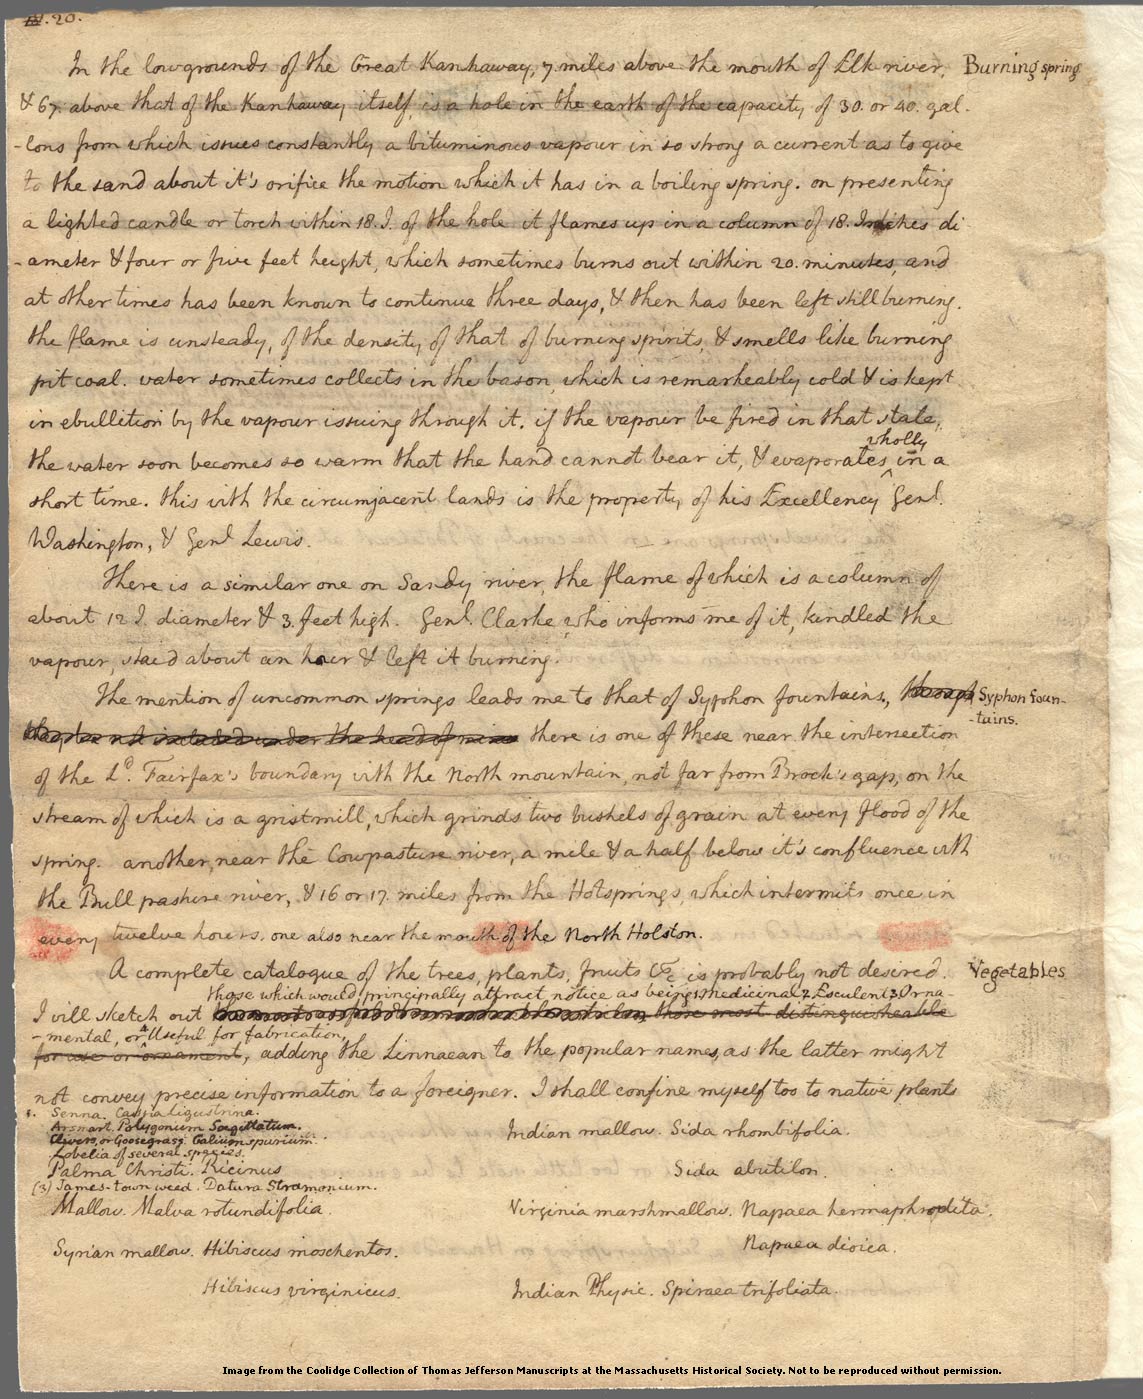 IV. 20.
In the lowgrounds of the Great Kanhaway, 7. miles above the mouth of Elk river, Burning spring
& 67. above that of the Kanhaway itself, is a hole in the earth of the capacity of 30. or 40. gal-
-lons from which issues constantly a bituminous vapour in so strong a current as to give
to the sand about it's orifice the motion which it has in a boiling spring. on presenting
a lighted candle or torch within 18. I. of the hole it flames up in a column of 18. Inches di-
-ameter & four or five feet height, which sometimes burns out within 20. minutes, and
at other times has been known to continue three days, & then has been left still burning.
the flame is unsteady, of the density of that of burning spirits, & smells like burning
pit coal. water sometimes collects in the bason, which is remarkeably cold & is kept
in ebullition by the vapour issuing through it. if the vapour be fired in that state,
wholly
the water soon becomes so warm that the hand cannot bear it, & evaporates in a
short time. this with the circumjacent lands is the property of his Excellency Genl.
Washington, & Genl Lewis.
There is a similar one on Sandy river, the flame of which is a column of
about 12 I. diameter & 3. feet high. Genl. Clarke who informs me of it, kindled the
vapour, staid about an hour & left it burning.
The mention of uncommon springs leads me to that of Syphon fountains, Syphon foun-
-tains.
there is one of these near the intersection
of the Ld. Fairfax's boundary with the North mountain, not far from Brock's gap, on the
stream of which is a gristmill, which grinds two bushels of grain at every flood of the
spring. another, near the Cowpasture river, a mile & a half below it's confluence with
the Bull pasture river, & 16 or 17. miles from the Hotsprings, which intermits once in
every twelve hours. one also near the mouth of the North Holston.
A complete catalogue of the trees, plants, fruits &c. is probably not desired. Vegetables
those which would principally attract notice as being 1. Medicinal 2. Esculent 3. Orna
I will sketch out those most distinguisheable
-mental, or 4. Useful for fabrication,
for use or ornament, adding the Linnaean to the popular names, as the latter might
not convey precise information to a foreigner. I shall confine myself too to native plants
1. Senna. Cassia ligustrina.
Arsmart. Polygonum Sagittatum.
Clivers, or Goosegrass. Galium spurium.
Lobelia of several species.
Palma Christi. Ricinus
(3) James-town weed. Datura Stramonium.
Mallow. Malva rotundifolia.
Syrian mallow. Hibiscus moschentos.
Hibiscus virginicus.
Indian mallow. Sida rhombifolia.
Sida abutilon.
Virginia marshmallow. Napaea hermaphrodita.
Napaea dioica.
Indian Physic. Spiraea trifoliata.
Image from the Coolidge Collection of Thomas Jefferson Manuscripts at the Massachusetts Historical Society. Not to be reproduced without permission.